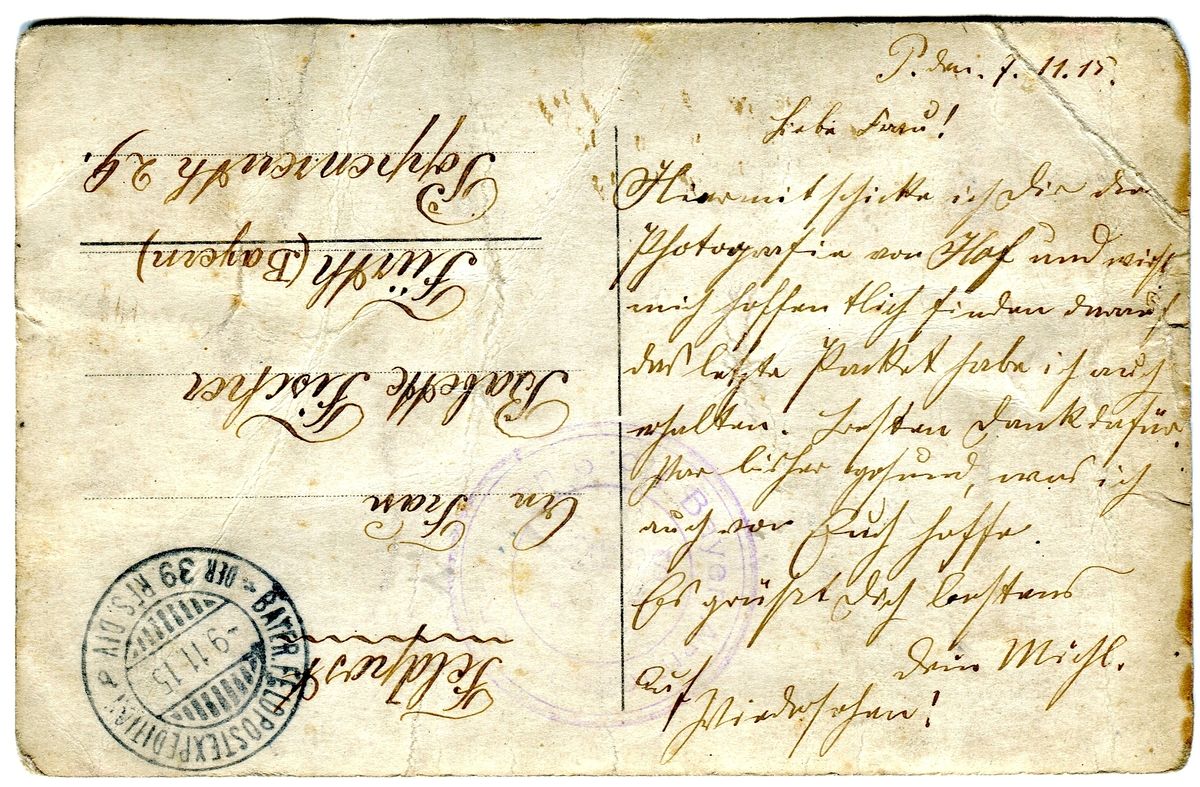 P. den 7. 11. 15.
Liebe Frau!
Hiermit schicke ich Dir die
Photografie von Hof und wirst
mich hoffentlich finden darauf
das letzte Packet habe ich auch
erhalten. Besten Dank dafür.
bisher gesund, was ich
auch von Euch hoffe.
Es grüßt Dich bestens
Dein Michl.
Auf
Wiedersehen!
Feldpost
An
Frau
Babette Fischer
Fürth (Bayern)
Poppenreuth 29.
BAYER. FELDPOSTEXPEDITION
DER 39 RES. DIV.
-9.11.15